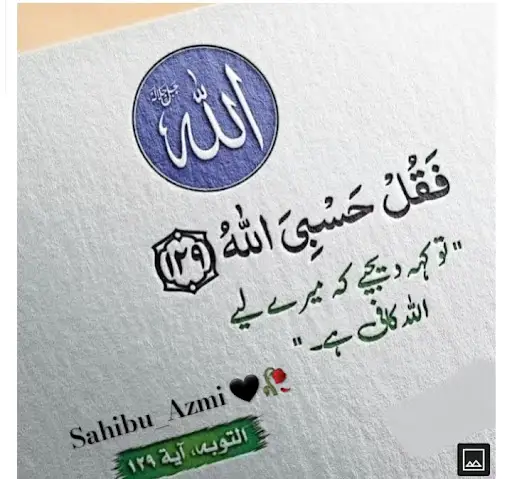 الله جل جلاله
فَقُلْ حَسْبِيَ اللهُ ۝١٢٩
"تو کہہ دیجیے کہ میرے لیے
اللہ کافی ہے۔"
Sahibu_Azmi🖤🥀
التوبہ، آية ١٢٩